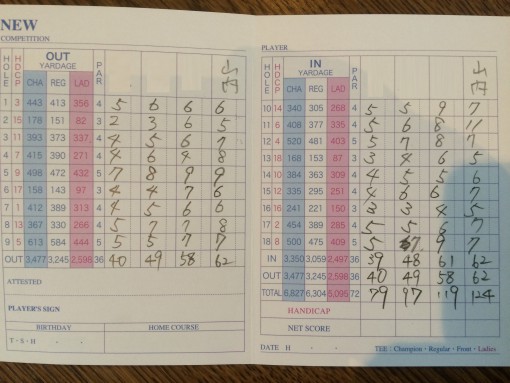 NEW
COMPETITION
OUT
YARDAGE
HOLE HDCP CHA REG LAD PAR 山内
1 3 443 413 356 4 5 6 6 6
2 15 178 151 82 3 2 3 6 5
3 11 393 373 337 4 4 5 6 7
4 7 415 390 271 4 4 6 4 8
5 9 498 472 432 5 7 8 9 9
6 17 158 143 97 3 4 4 7 6
7 1 412 389 313 4 4 5 6 6
8 13 367 330 266 4 5 7 7 8
9 5 613 584 444 5 5 5 7 7
OUT 3,477 3,245 2,598 36 40 49 58 62
ATTESTED
PLAYER'S SIGN
BIRTHDAY HOME COURSE
T・S・H ・ ・
PLAYER
IN
YARDAGE
HOLE HDCP CHA REG LAD PAR 山内
10 14 340 305 268 4 5 5 9 7
11 6 408 377 335 4 5 6 8 11
12 4 520 481 403 5 5 7 8 7
13 18 168 153 87 3 3 4 6 5
14 10 384 363 309 4 4 5 5 6
15 12 335 295 251 4 4 6 6 7
16 16 241 221 150 3 3 3 4 5
17 2 454 389 285 4 5 5 6 7
18 8 500 475 409 5 5 7 9 7
IN 3,350 3,059 2,497 36 39 48 61 62
OUT 3,477 3,245 2,598 36 40 49 58 62
TOTAL 6,827 6,304 5,095 72 79 97 119 124
HANDICAP
NET SCORE
DATE H ・ ・ TEE : Champion・Regular・Front・Ladies